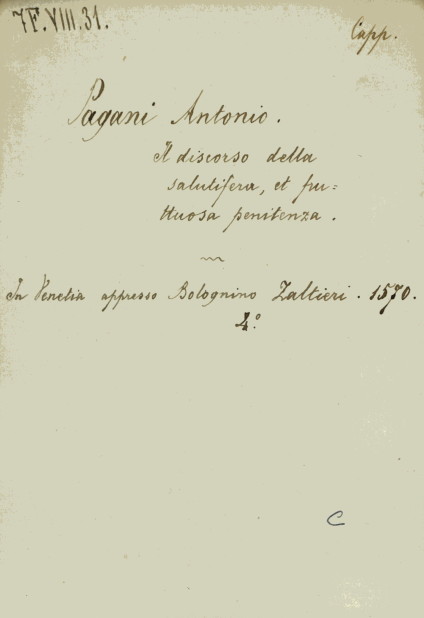 7F.VIII.31.
Capp.
Pagani Antonio.
Il discorso della
salutifera, et fru=
ttuosa penitenza.
In Venetia appresso Bolognino Zaltieri. 1570.
4.º
C